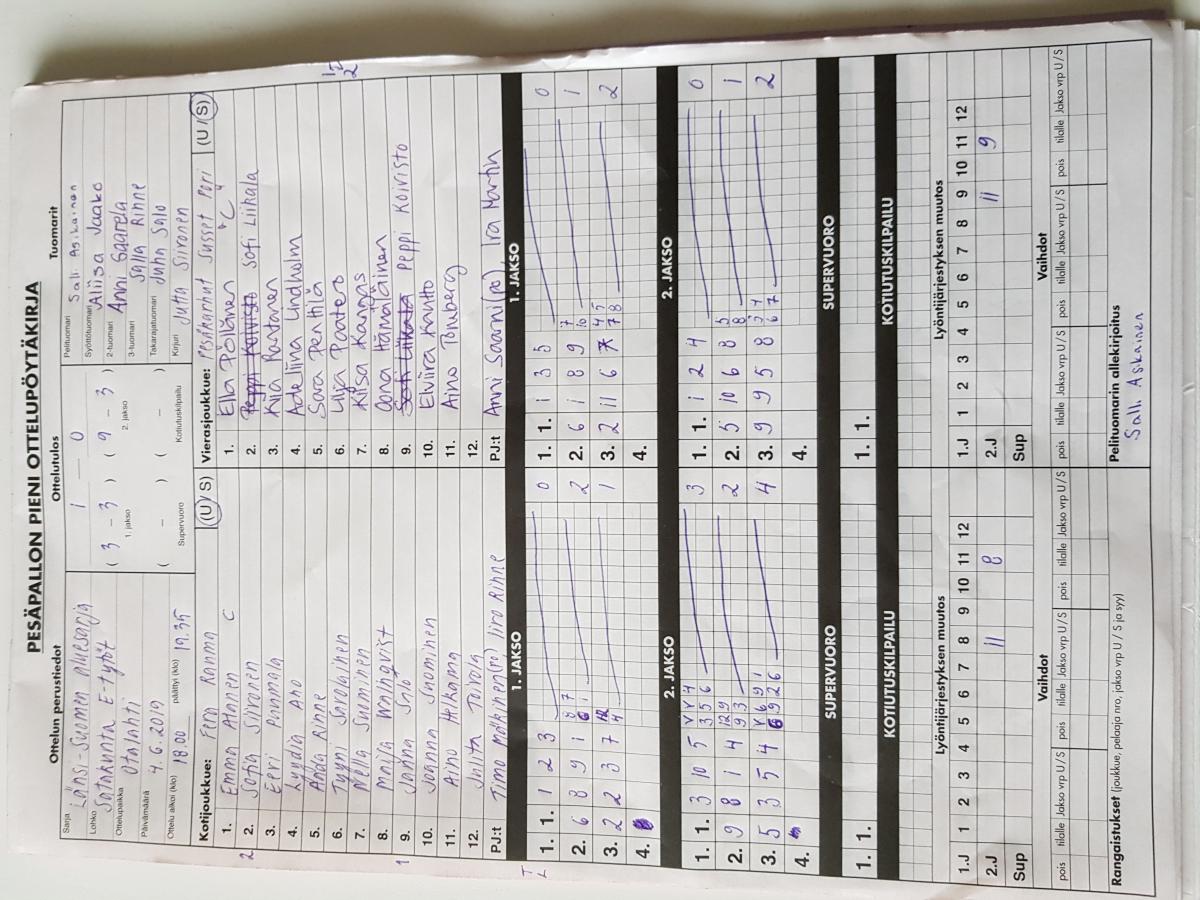 PESÄPALLON PIENI OTTELUPÖYTÄKIRJA
Ottelun perustiedot Ottelutulos Tuomarit
Sarja Länsi-Suomen aluesarja
Lohko Satakunta E-tytöt
Ottelupaikka Otalahti
Päivämäärä 4.6.2019
Ottelu alkoi (klo) 18.00 päättyi (klo) 19.35
1 — 0
( 3 - 3 ) ( 9 - 3 )
1. jakso 2. jakso
( - ) ( - )
Supervuoro Kotiutuskilpailu
Pelituomari Salli Askainen
Syöttötuomari Aliisa Jaako
2-tuomari Anni Saarela
3-tuomari Salla Rinne
Takarajatuomari Juha Salo
Kirjuri Jutta Siironen
Kotijoukkue: Fera Rauma (U / S)
1. Emma Alanen C
2. Sofia Siironen
3. Eeri
4. Lyydia Aho
5. Anda Rinne
6. Tyyni Savolainen
7. Nella Suominen
8. Maija Malmqvist
9. Janna Salo
10. Joanna Suominen
11. Aino Ihlkama
12. Julita Toivola
PJ:t Timo Mäkinen(pe) Iiro Rinne
Vierasjoukkue: Pesäkarhut Susset Pori (U / S)
1. Ella Pölänen "C"
2. Peppi Koivisto Sofi Liikala
3. Kiia Rostanen
4. Adeliina Lindholm
5. Sara Penttilä
6. Lilja Paatero
7. Kiisa Kangas
8. Oona Hämäläinen
9. Sofi Liikala Peppi Koivisto
10. Elviira Kautto
11. Aino Tömberg
12.
PJ:t Anni Saarni(pe), Ira Martin
1. JAKSO 1. JAKSO
1. 1. 1 2 3 0
2. 6 8 9 1 2
3. 2 2 3 7 1
4.
1. 1. 1 3 5 0
2. 6 1 8 9 1
3. 2 11 6 7 2
4.
2. JAKSO 2. JAKSO
1. 1. 3 10 5 3
2. 9 8 1 4 2
3. 5 3 5 4 4
4.
1. 1. 1 2 4 0
2. 5 10 6 8 1
3. 9 9 5 8 2
4.
SUPERVUORO SUPERVUORO
1. 1. 1. 1.
KOTIUTUSKILPAILU KOTIUTUSKILPAILU
Lyöntijärjestyksen muutos Lyöntijärjestyksen muutos
1.J 1 2 3 4 5 6 7 8 9 10 11 12 1.J 1 2 3 4 5 6 7 8 9 10 11 12
2.J 11 8 2.J 11 9
Sup Sup
Vaihdot Vaihdot
pois tilalle Jakso vrp U / S pois tilalle Jakso vrp U / S pois tilalle Jakso vrp U / S pois tilalle Jakso vrp U / S pois tilalle Jakso vrp U / S pois tilalle Jakso vrp U / S
Rangaistukset (joukkue, pelaaja nro, jakso vrp U / S ja syy) Pelituomarin allekirjoitus
Salli Askainen